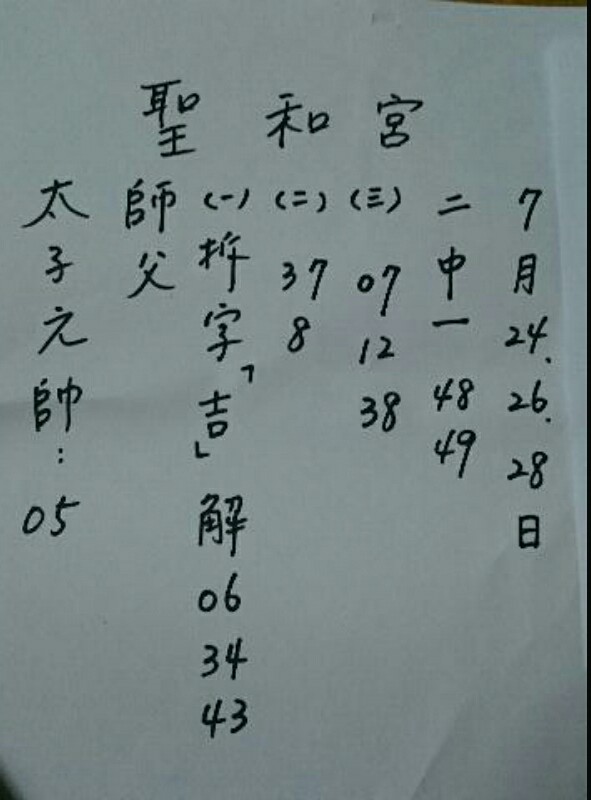 聖和宮
7月24.26.28日
二中一 48 49
(三) 07 12 38
(二) 37 8
師父 (一) 拆字「吉」解 06 34 43
太子元帥：05